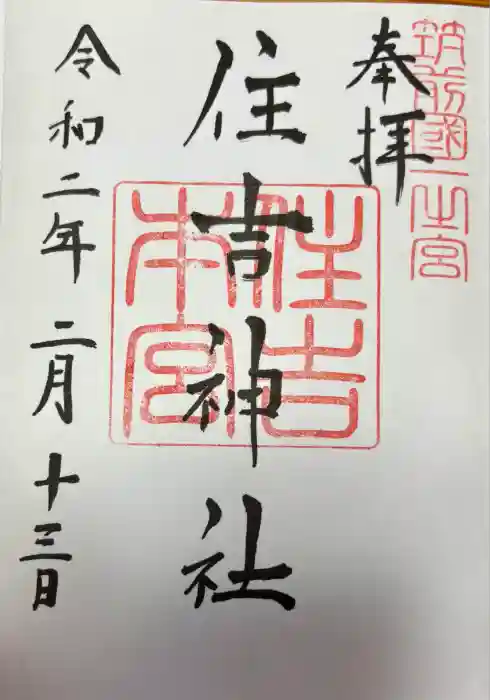 筑前國一之宮
奉拝
住吉神社
住吉本宮
令和二年二月十三日